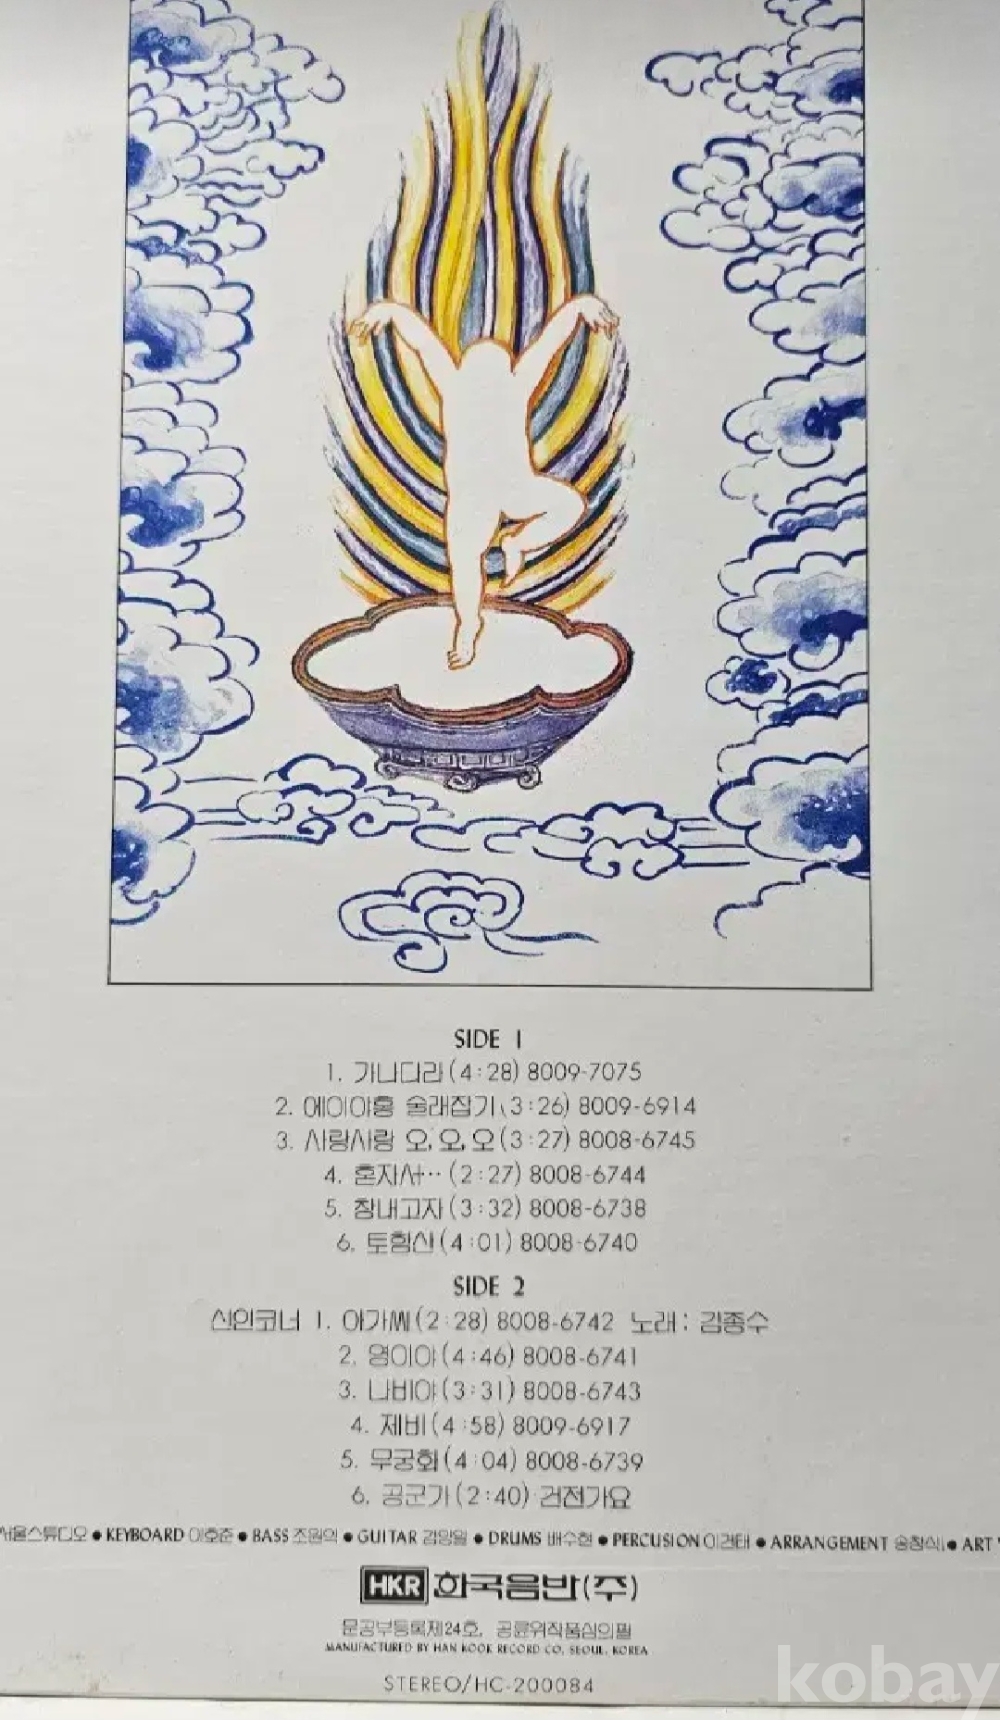 SIDE 1
1. 가나다라(4:28) 8009-7075
2. 에이야홍 술래잡기(3:26) 8009-6914
3. 사랑사랑 오, 오, 오(3:27) 8008-6745
4. 혼자서‥(2:27) 8008-6744
5. 참내고자(3:32) 8008-6738
6. 토함산(4:01) 8008-6740
SIDE 2
신인코너 1. 아가씨(2:28) 8008-6742 노래: 김종수
2. 영이야(4:46) 8008-6741
3. 나비야(3:31) 8008-6743
4. 제비(4:58) 8009-6917
5. 무궁화(4:04) 8008-6739
6. 공군가(2:40) 건전가요
서울스튜디오 ● KEYBOARD 이호준 ● BASS 조원익 ● GUITAR ● DRUMS 배수현 ● PERCUSION 이건태 ● ARRANGEMENT 송창식 ● ART
HKR 한국음반(주)
문공부등록제24호, 공륜위작품심의필
MANUFACTURED BY HAN KOOK RECORD CO, SEOUL, KOREA
STEREO/HC-200084
kobay